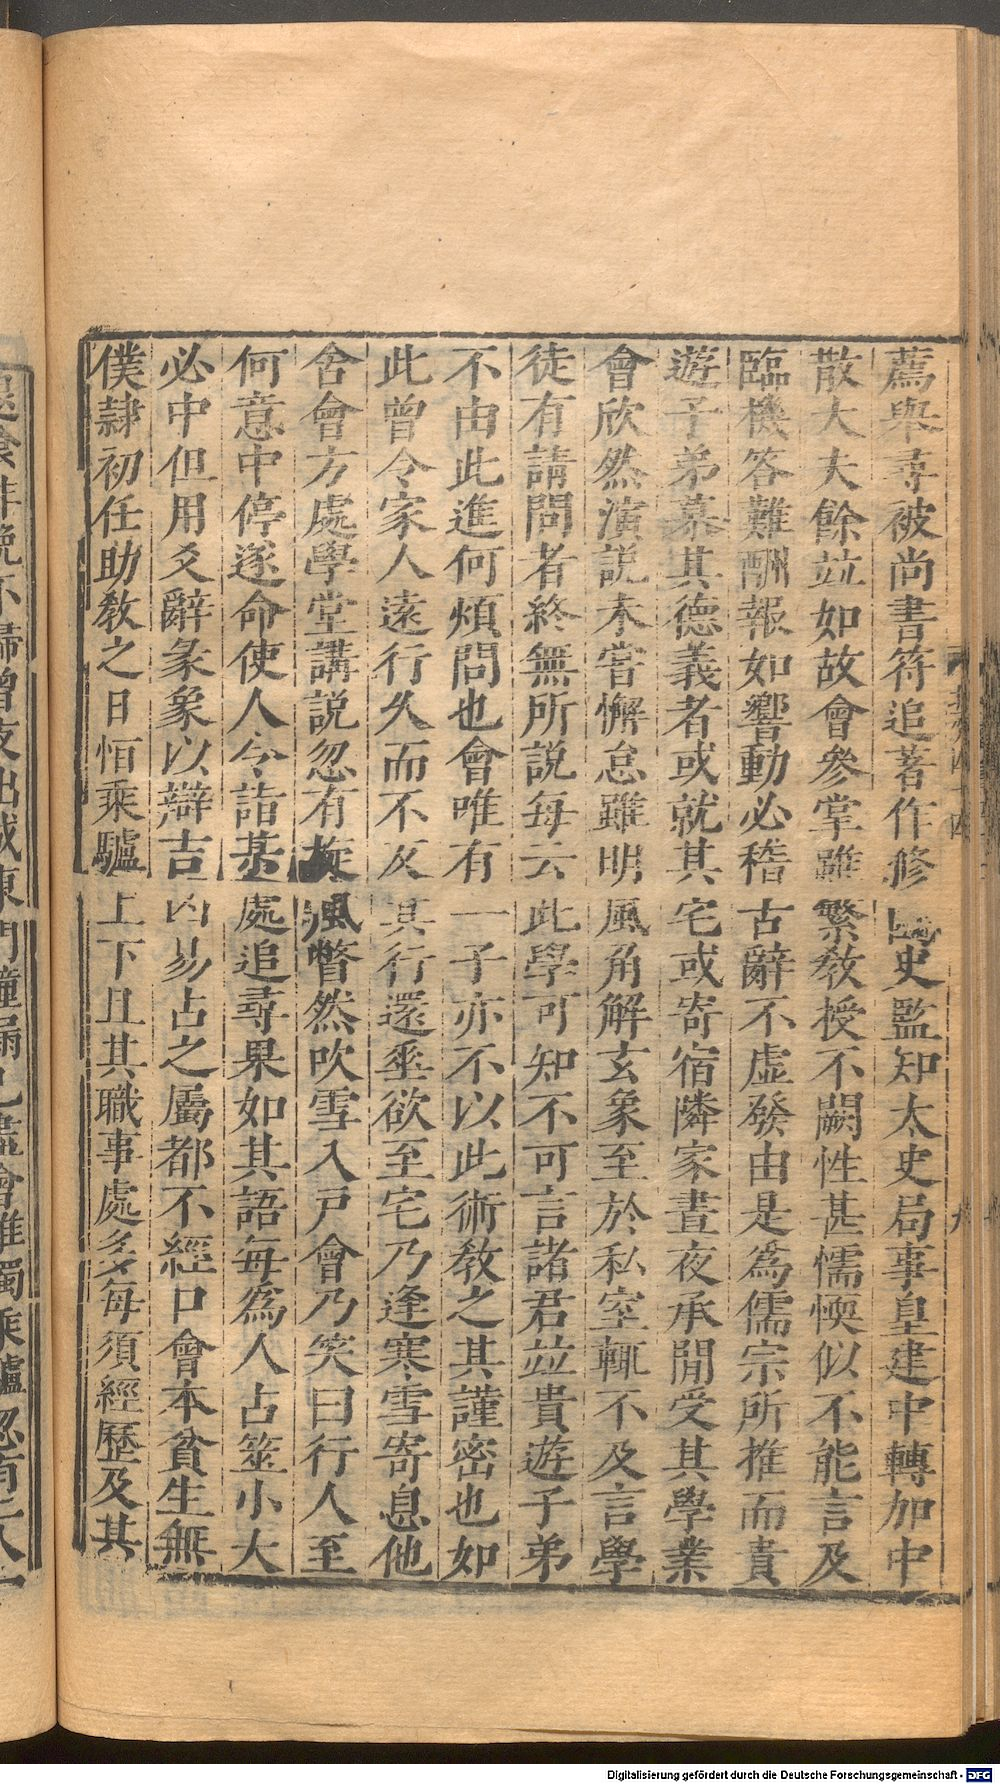 薦舉尋被尚書符追著作修國史監知太史局事皇建中轉加中
散大夫餘並如故會參掌雖繁教授不闕性甚懦愞似不能言及
臨機答難酬報如響動必稽古辭不虛發由是為儒宗所推而貴
遊子弟慕其德義者或就其宅或寄宿隣家晝夜承閒受其學業
會欣然演說未嘗懈怠雖明風角解玄象至於私室輒不及言學
徒有請問者終無所說每云此學可知不可言諸君並貴遊子弟
不由此進何煩問也會唯有一子亦不以此術教之其謹密也如
此曾令家人遠行久而不反其行還垂欲至宅乃逢寒雪寄息他
舍會方處學堂講說忽有旋風瞥然吹雪入戶會乃笑曰行人至
何意中停遂命使人令詣某處追尋果如其語每為人占筮小大
必中但用爻辭彖象以辯吉凶易占之屬都不經口會本貧生無
僕隸初任助教之日恒乘驢上下且其職事處多每須經歷及其
晚不歸曾夜出城東門鐘漏已盡會惟獨乘驢忽有二人一
Digitalisierung gefördert durch die Deutsche Forschungsgemeinschaft - DFG